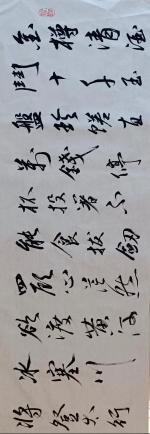 金樽清酒
鬥十千玉
盤珍饈直
萬錢停
杯投箸不
能食拔劍
四顧心茫然
欲渡黃河
冰塞川
將登太行